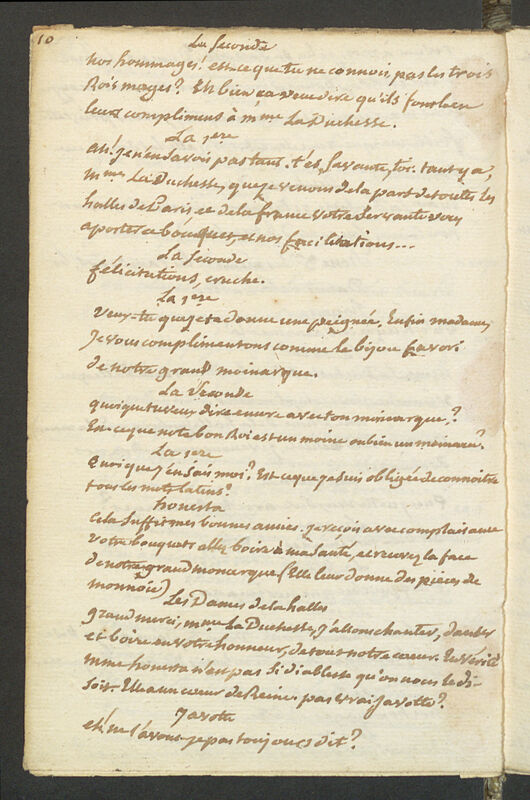 10
La Seconde
nos hommages! est-ce que tu ne connois pas les trois
Rois mages? Eh bien ca veut dire qu'ils font bien
leurs compliment à mme La Duchesse.
La 1ere
ah! je n'en savois pas tant. t'es savante, toi. tant y a,
mme La Duchesse, que je venons de la part de toutes les
halles de Paris, et de la france votre servante vous
aporter ce bouquet, et nos facilitations...
La Seconde
félicitations, cruche.
La 1ere
Veux-tu que je te donne une peignée. Enfin madame,
Je vous complimentons comme le bijou favori
de notre grand moinarque.
La Seconde
quoi que tu veux dire encore avec ton moinarque?
Est-ce que note bon Roi est un moine ou bien un moineau?
La 1ere
Quoi que j'en sais moi? Est-ce que je suis obligée de connoitre
tous les mots latins?
honesta
Cela suffit mes bonnes amies. je reçois avec complaisance
votre bouquet allez boire à ma santé, et recevez la face
de notre grand monarque (Elle leur donne des pièces de
monnoie)
Les Dames de la halles
grand merci, mme La Duchesse, j'allons chanter, danser
et boire en votre honneur, de tout notre cœur. En vérité
mme honesta n'est pas si diablesse qu'on nous le di-
soit. Elle a un cœur de Reine. pas vrai Javotte?
Javotte
eh! ne l'avons-je pas toujours dit?